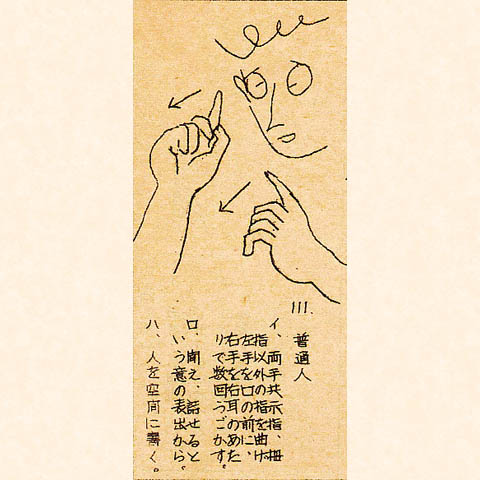 III.
普通人
イ、両手共示指、拇
指以外の指を曲げ
左手を口の前に、
右手を右耳のあた
りで数回うごかす。
ロ、聞え、話せると
いう意の表出から。
ハ、人を空間に書く。